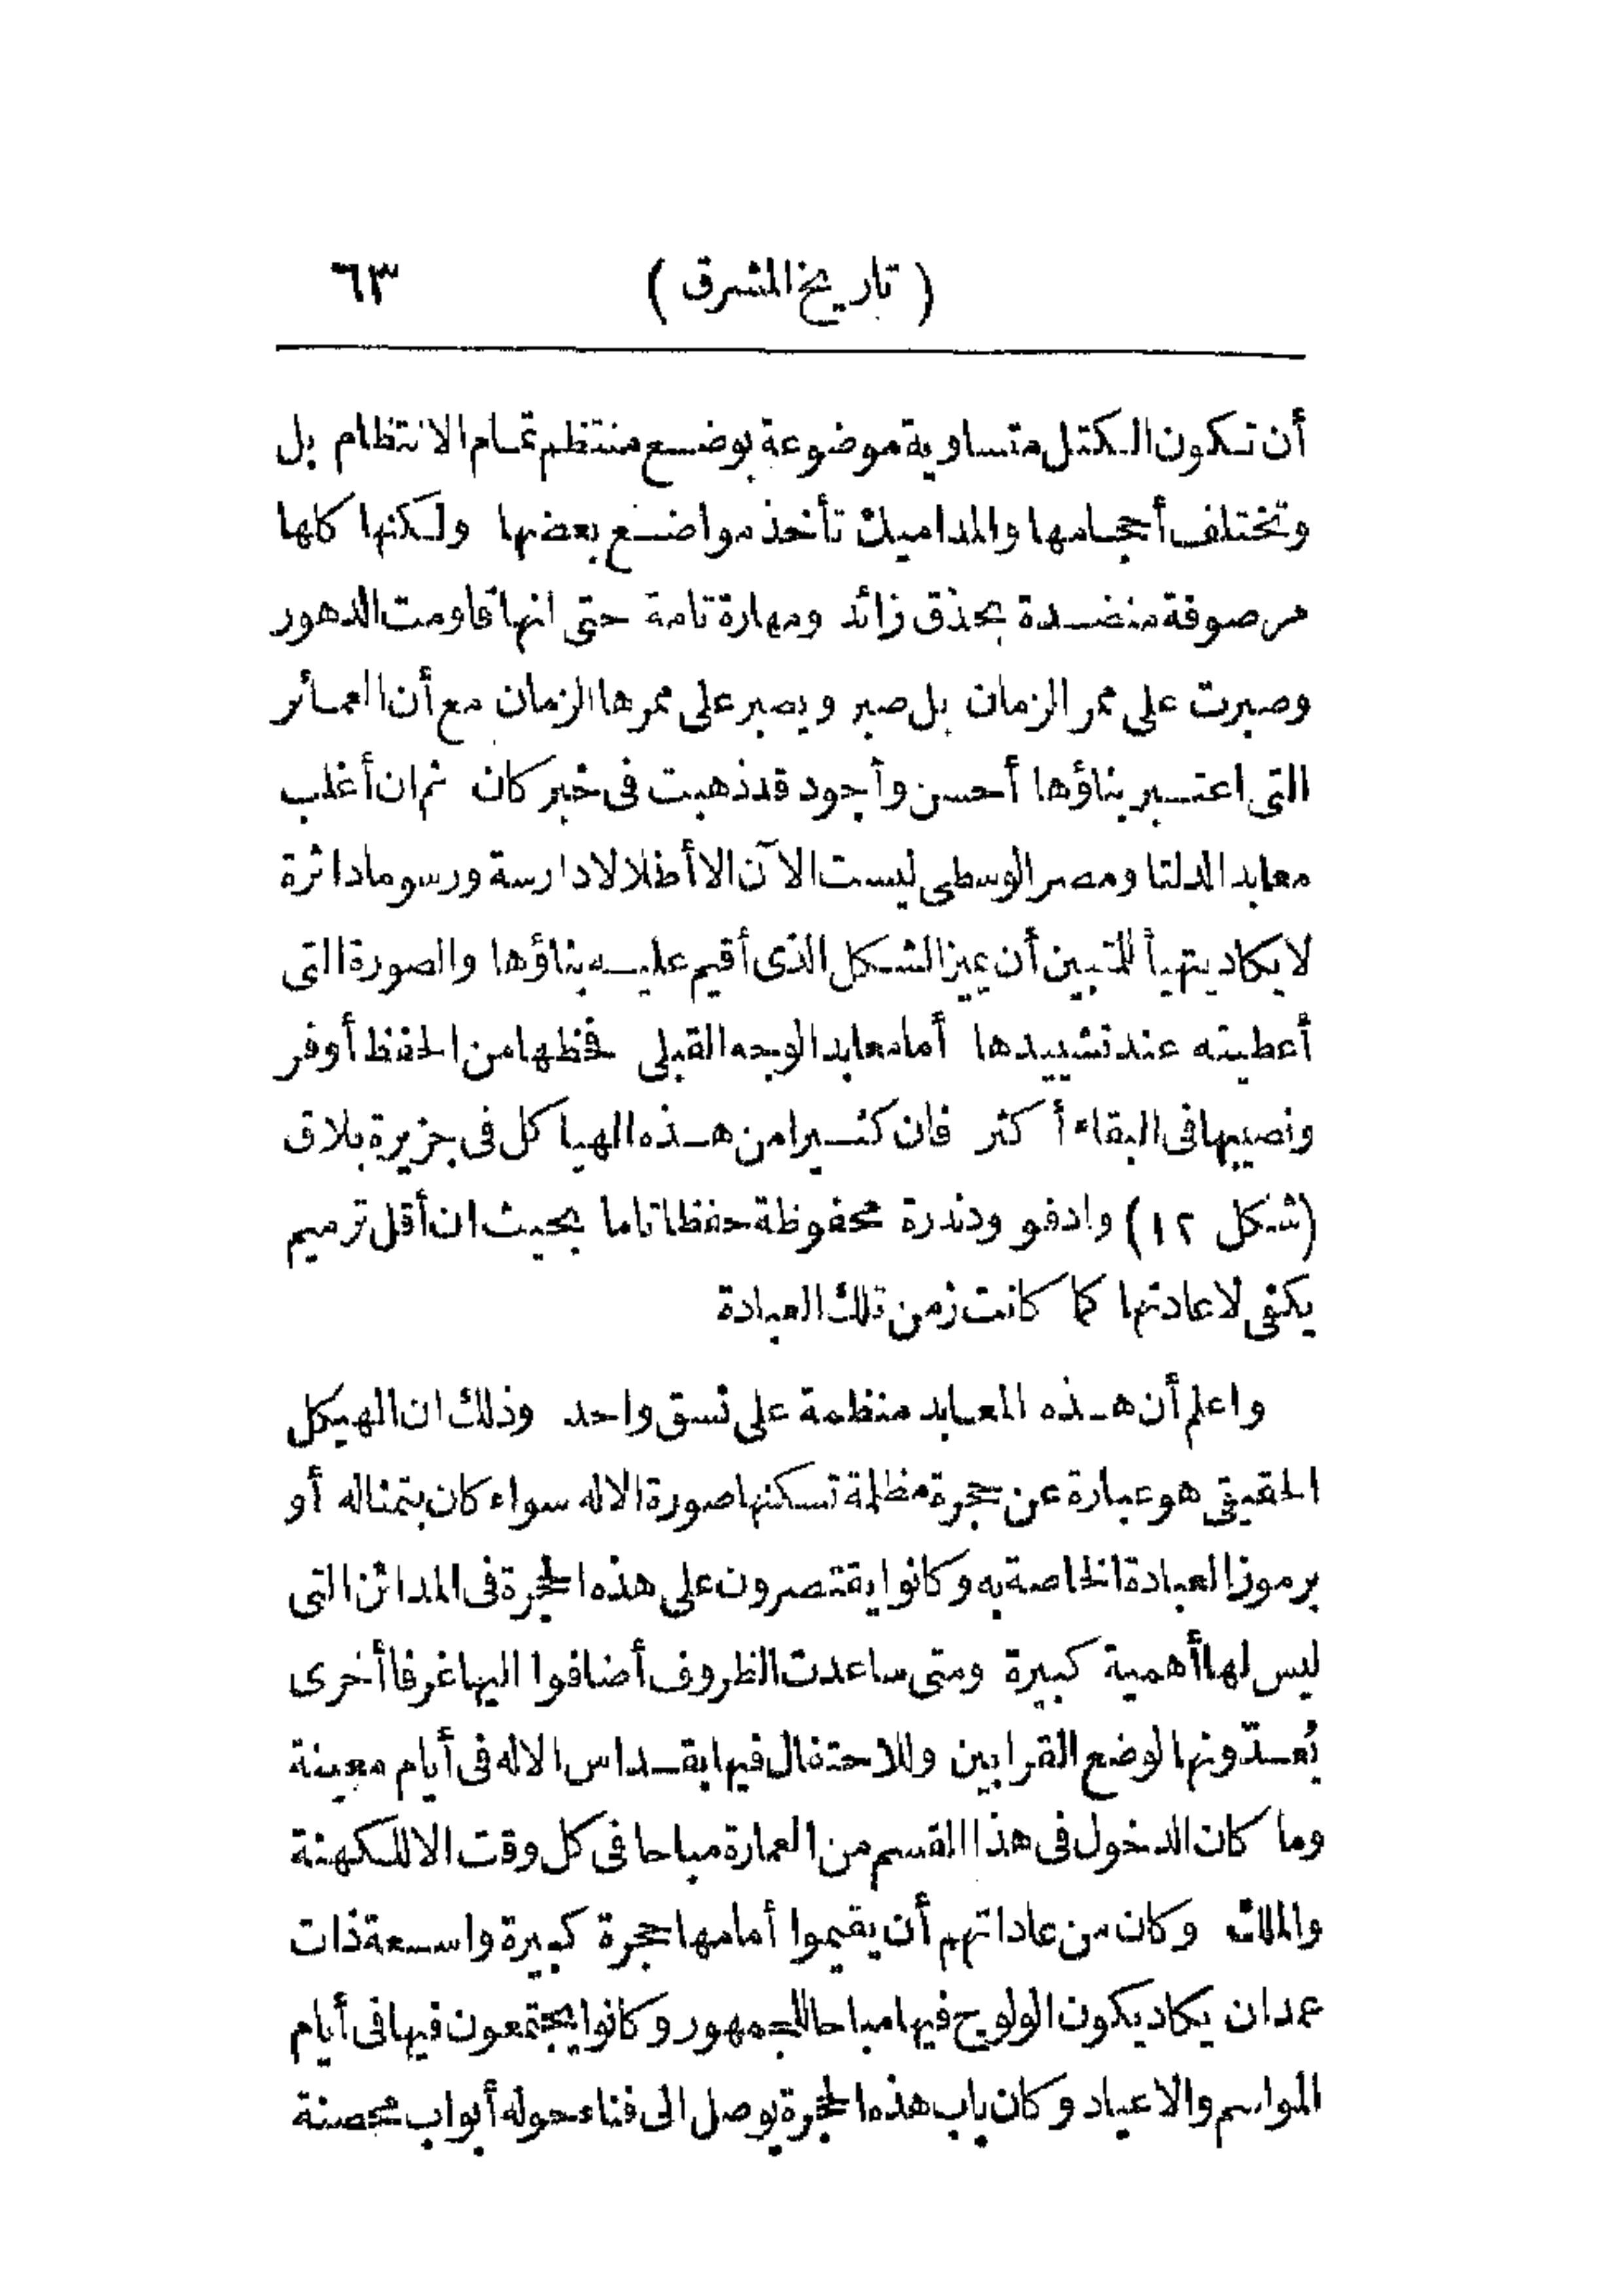 ( تاريخ المشرق ) ٦٣
أن تكون الكتل متساوية موضوعة بوضع منتظم تمام الانتظام بل
وتختلف أحجامها والمداميك تأخذ مواضع بعضها ولكنها كلها
مرصوفة منضدة بحذق زائد ومهارة تامة حتى انها قاومت الدهور
وصبرت على ممر الزمان بل صبر ويصبر على ممرها الزمان مع أن العمائر
التى اعتبر بناؤها أحسن وأجود قد ذهبت فى خبر كان ثم ان أغلب
معابد الدلتا ومصر الوسطى ليست الآن الا أطلالا دارسة ورسوما داثرة
لا يكاد يتهيأ للمتبين أن يميز الشكل الذى أقيم عليه بناؤها والصورة التى
أعطيته عند تشييدها أما معابد الوجه القبلى فحظها من الحفظ أوفر
ونصيبها فى البقاء أكثر فان كثيرا من هذه الهياكل فى جزيرة بلاق
(شكل ١٢) وادفو ودندرة محفوظة حفظا تاما بحيث ان أقل ترميم
يكفى لاعادتها كما كانت زمن تلك العبادة
واعلم أن هذه المعابد منظمة على نسق واحد وذلك ان الهيكل
الحقيقى هو عبارة عن حجرة مظلمة تسكنها صورة الاله سواء كان بتمثاله أو
برموز العبادة الخاصة به وكانوا يقتصرون على هذه الحجرة فى المدائن التى
ليس لها أهمية كبيرة ومتى ساعدت الظروف أضافوا اليها غرفا أخرى
يُعدّونها لوضع القرابين وللاحتفال فيها بقداس الاله فى أيام معينة
وما كان الدخول فى هذا القسم من العمارة مباحا فى كل وقت الا للكهنة
والملك وكان من عاداتهم أن يقيموا أمامها حجرة كبيرة واسعة ذات
عمدان يكاد يكون الولوج فيها مباحا للجمهور وكانوا يجتمعون فيها فى أيام
المواسم والاعياد وكان باب هذه الحجرة يوصل الى فناء حوله أبواب محصنة